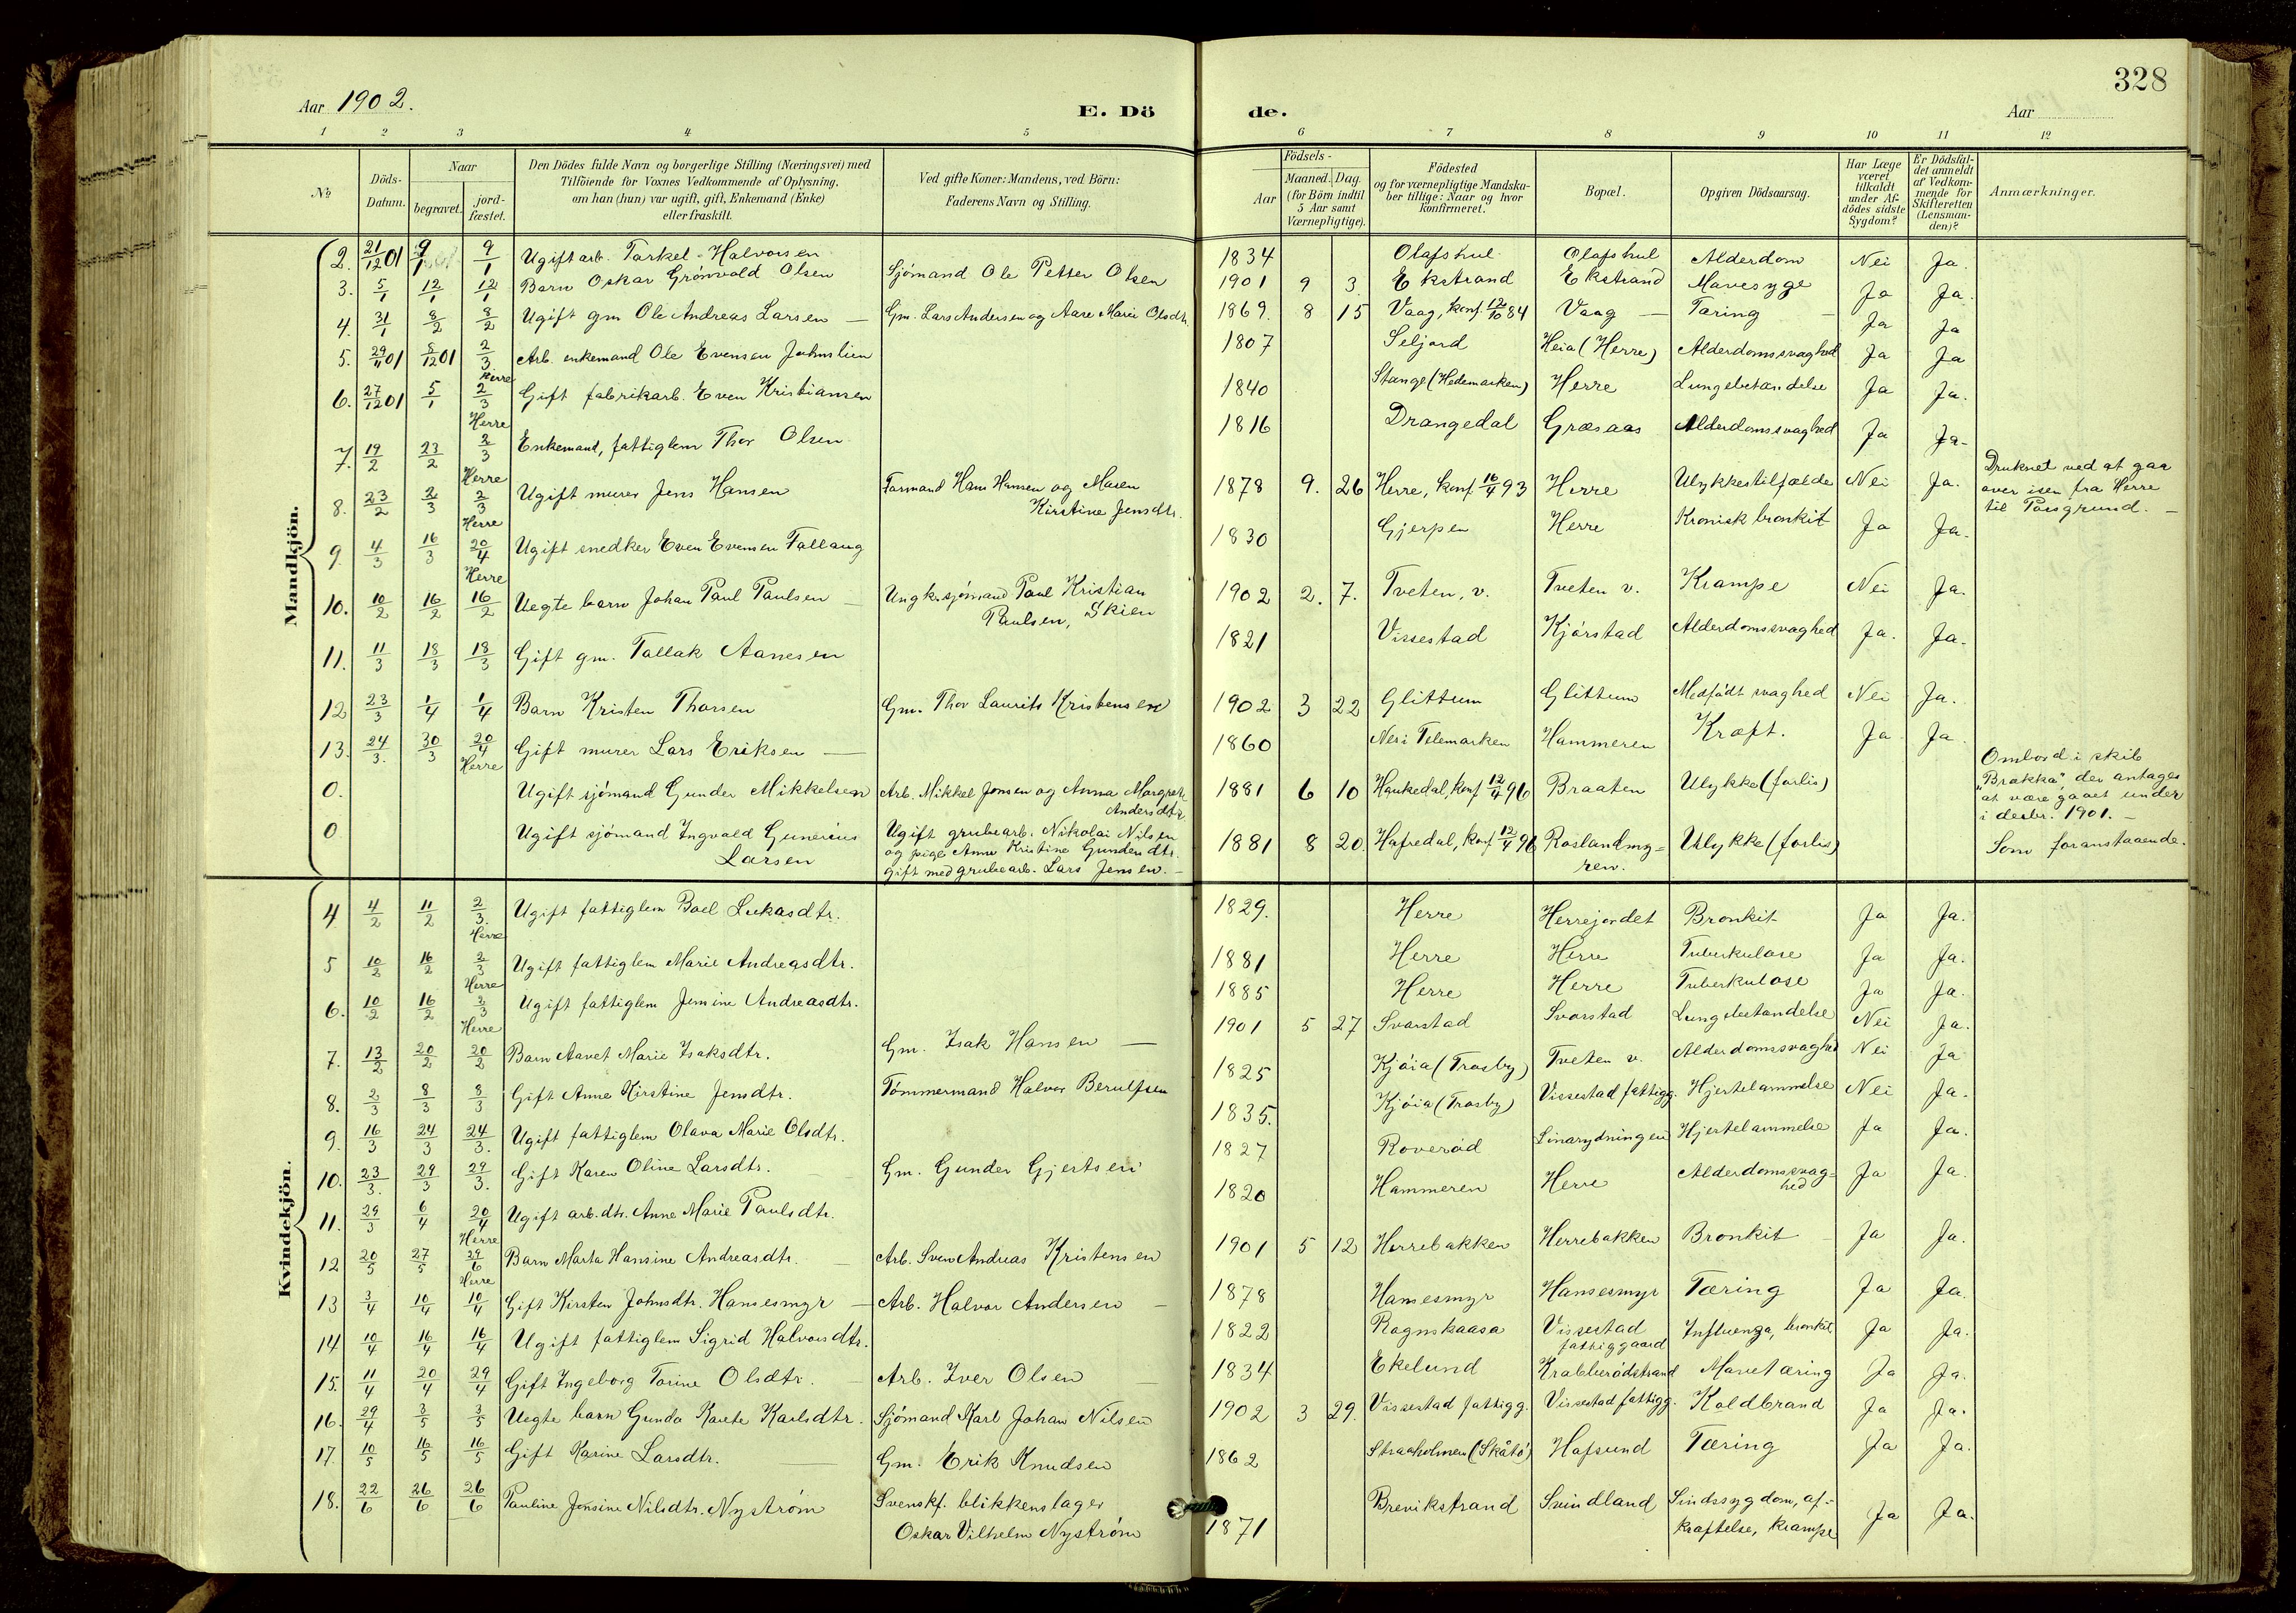 328
Aar 1902.
E. Dö
de.
Aar
1 2 3 4 5 6 7 8 9 10 11 12
No
Döds-Datum.
Naar
begravet.
jord-fæstet.
Den Dödes fulde Navn og borgerlige Stilling (Næringsvei) med
Tilföiende for Voxnes Vedkommende af Oplysning,
om han (hun) var ugift, gift, Enkemand (Enke)
eller fraskilt.
Ved gifte Koner: Mandens, ved Börn:
Faderens Navn og Stilling.
Födsels-
Aar
Maaned. Dag.
(for Börn indtil
5 Aar samt
Værnepligtige).
Födested
og for værnepligtige Mandska-
ber tillige: Naar og hvor
konfirmeret.
Bopæl.
Opgiven Dödsaarsag.
Har Læge
været
tilkaldt
under Af-
dödes sidste
Sygdom?
Er Dödsfal-
det anmeldt
af Vedkom-
mende for
Skifteretten
(Lensman-
den)?
Anmærkninger.
Mandkjön.
2. 21/12 01 9/1 9/1 Ugift arb. Tarkel Halvorsen 1834 Olafshul Olafshul Alderdom Nei Ja.
3. 5/1 12/1 12/1 Barn Oskar Grönvold Olsen Sjömand Ole Petter Olsen 1901 9 3. Ekstrand Ekstrand Mavesyge Ja Ja.
4. 31/1 8/2 8/2 Ugift gm Ole Andreas Larsen — Gm. Lars Andersen og Aase Marie Olsdtr. 1869. 8 15 Vaag, konf. 12/10 84 Vaag — Tæring — Ja Ja
5. 29/11 01 5/12 01 2/3 Herre Arb. enkemand Ole Evensen Johnslien 1807 Seljord Heia (Herre) Alderdomssvaghed Ja Ja
6. 27/12 01 5/1 2/3 Herre Gift fabrikarb. Even Kristiansen 1840 Stange (Hedemarken) Herre Lungebetændelse Ja Ja.
7. 19/2 23/2 2/3 Herre Enkemand, fattiglem Thor Olsen 1816 Drangedal Græsaas Alderdomssvaghed Ja Ja-
8. 23/2 2/3 2/3 Herre Ugift murer Jens Hansen Formand Hans Hansen og Maren
Kirstine Jensdtr. 1878 9. 26 Herre, konf. 16/4 93 Herre Ulykkestilfælde Nei Ja. Druknet ved at gaa
over isen fra Herre
til Porsgrund. —
9. 4/3 16/3 20/4 Herre Ugift snedker Even Evensen Tallaug 1830 Gjerpen Herre Kronisk bronkit Ja Ja.
10. 10/2 16/2 16/2 Uegte barn Johan Paul Paulsen — Ungk. sjömand Paul Kristian
Paulsen, Skien 1902 2. 7. Tveten, v. Tveten v. Krampe Nei Ja.
11. 11/3 18/3 18/3 Gift gm. Tallak Aanesen 1821 Vissestad Kjörstad Alderdomssvaghed Ja. Ja.
12 23/3 1/4 1/4 Barn Kristen Thorsen Gm. Thor Laurits Kristensen 1902 3 22 Glittum Glittum Medfödt svaghed Nei Ja.
13. 24/3. 30/3 20/4 Herre Gift murer Lars Eriksen — 1860 Nes i Telemarken Hammeren Kræft. Ja Ja
0. Ugift sjömand Gunder Mikkelsen Arb. Mikkel Jonsen og Anna Margreth
Andersdtr. 1881 6 10 Haukedal, konf 12/4 96 Braaten Ulykke (forlis) Ombord i skib
"Brækka" der antages
at være gaaet under
i desbr. 1901. —
0 Ugift sjömand Ingvald Gunerius
Larsen Ugift grubearb. Nikolai Nilsen
og pige Anne Kristine Gundersdtr.
gift med grubearb. Lars Jensen. — 1881 8 20. Hafredal, konf 12/4 96 Roslandmy=
ren. Ulykke (forlis) Som foranstaaende.
Kvindekjön.
4 4/2 11/2 2/3. Herre Ugift fattiglem Boel Lukasdtr. 1829. Herre Herrejordet Bronkit Ja Ja.
5 10/2 16/2 2/3 Herre Ugift fattiglem Marie Andreasdtr. 1881 Herre Herre Tuberkulose Ja Ja.
6. 10/2 16/2 2/3 Herre Ugift fattiglem Jensine Andreasdtr. 1885 Herre Herre Tuberkulose Ja Ja.
7. 13/2 20/2 20/2 Barn Aavet Marie Isaksdtr. Gm. Isak Hansen — 1901 5 27 Svarstad Svarstad Lungebetændelse Nei Ja.
8. 2/3 8/3 8/3 Gift Anne Kirstine Jensdtr. Tömmermand Halvor Berulfsen 1825 Kjöia (Trosby) Tveten v. Alderdomssvaghed Nei Ja
9. 16/3 24/3 24/3. Ugift fattiglem Olava Marie Olsdtr. 1835. Kjöia (Trosby) Vissestad fattigg. Hjertelammelse Nei Ja.
10. 23/3. 29/3 29/3. Gift Karen Oline Larsdtr. Gm. Gunder Gjertsen 1827 Roveröd Sinarydningen Hjertelammelse Ja Ja.
11. 29/3 6/4 20/4 Herre Ugift arb. dtr. Anne Marie Paulsdtr. 1820 Hammeren Herre Alderdomssvag=
hed Ja Ja.
12 20/5 27/5 29/6 Herre Barn Marta Hansine Andreasdtr. — Arb. Sven Andreas Kristensen 1901 5 12 Herrebakken Herrebakken Bronkit — Ja Ja.
13 3/4 10/4 10/4 Gift Kirsten Johnsdtr. Hansesmyr — Arb. Halvor Andersen — 1878 Hansesmyr Hansesmyr Tæring Ja Ja.
14 10/4 16/4 16/4 Ugift fattiglem Sigrid Halvorsdtr. 1822 Ragnskaasa Vissestad
fattiggaard Influenza, bronkit Ja Ja.
15. 11/4 20/4 29/4 Gift Ingeborg Torine Olsdtr. — Arb. Iver Olsen — 1834 Ekelund Krabberödstrand Mavetæring Ja Ja.
16. 29/4 3/5 3/5 Uegte barn Gunda Karete Karlsdtr. Sjömand Karl Johan Nilsen 1902 3 29. Vissestad fattigg. Vissestad fattigg. Koldbrand Ja Ja.
17. 10/5 16/5 16/5 Gift Karine Larsdtr. — Gm. Erik Knudsen 1862 Straaholmen (Skåtö) Hafsund Tæring Ja Ja.
18. 22/6 26/6 26/6 Pauline Jensine Nilsdtr. Nyström Svensk f. blikkenslager
Oskar Vilhelm Nyström 1871 Brevikstrand Svindland Sindssygdom, af-
kræftelse, krampe Ja Ja.